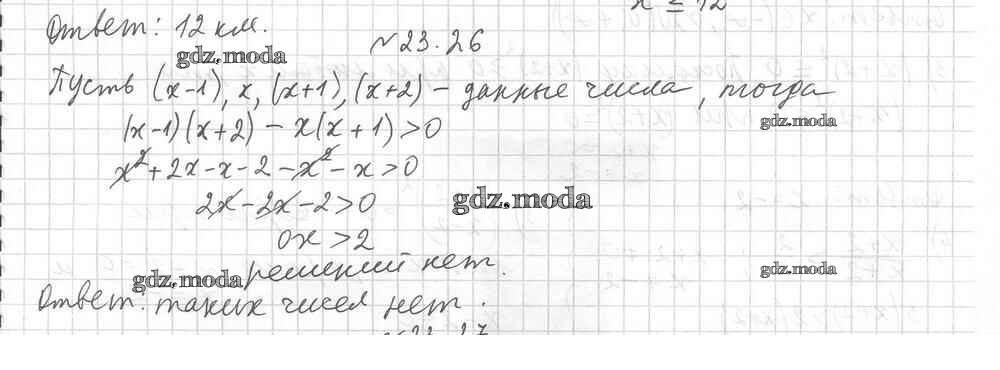 x ≤ 12
Ответ: 12 км.
gdz.moda
№ 23.26
Пусть (x-1), x, (x+1), (x+2) - данные числа, тогда
gdz.moda
(x-1)(x+2) - x(x+1) > 0
x² + 2x - x - 2 - x² - x > 0
gdz.moda
2x - 2x - 2 > 0
0x > 2
решений нет.
gdz.moda
gdz.moda
Ответ: таких чисел нет.
№23.27